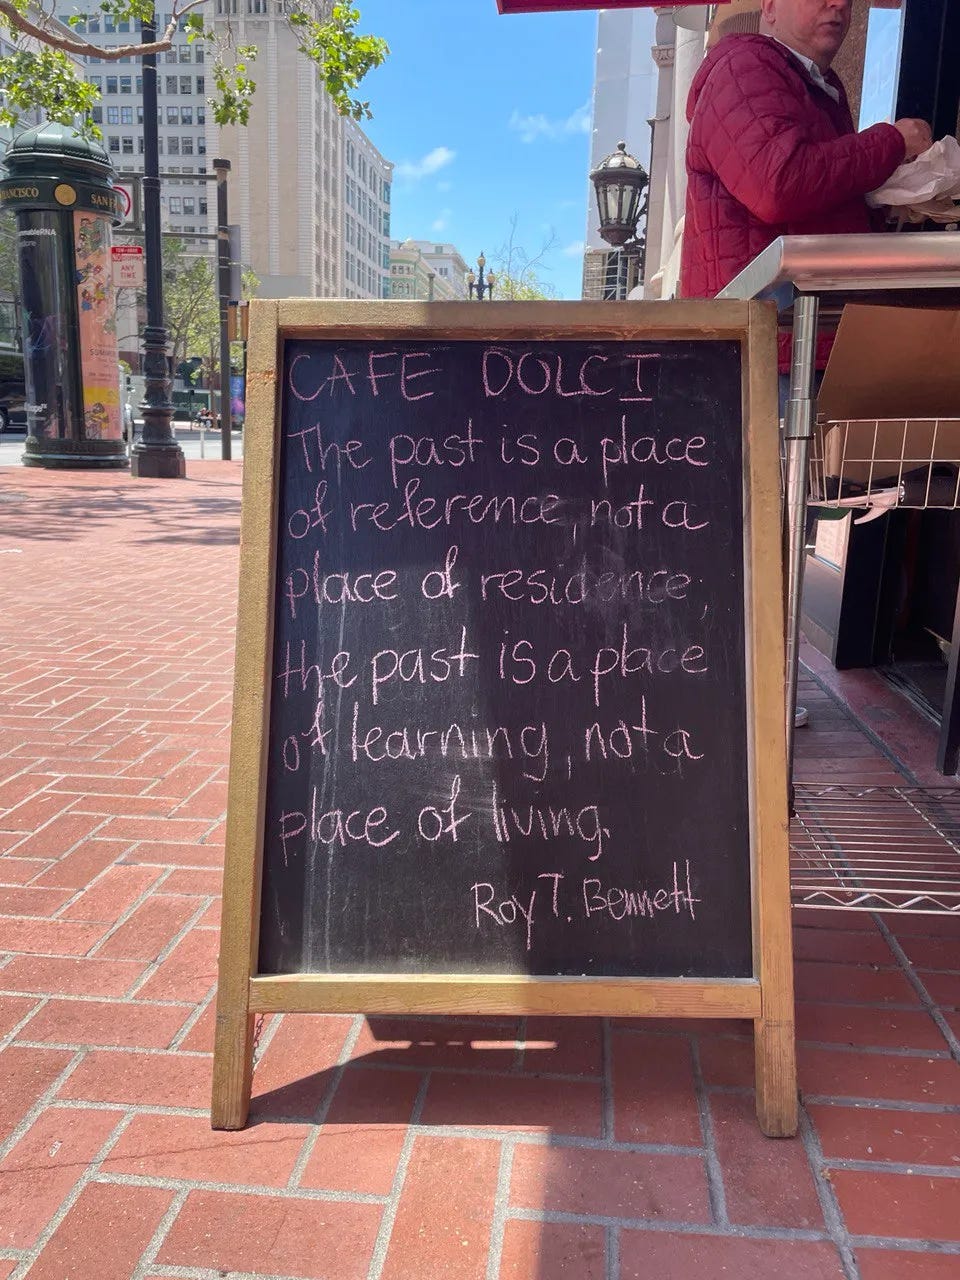 CAFE DOLCI
The past is a place
of reference, not a
place of residence;
the past is a place
of learning, not a
place of living.
Roy T. Bennett
ANCISCO SAN F
TOW-AWAY
NO STOPPING
ANY
TIME